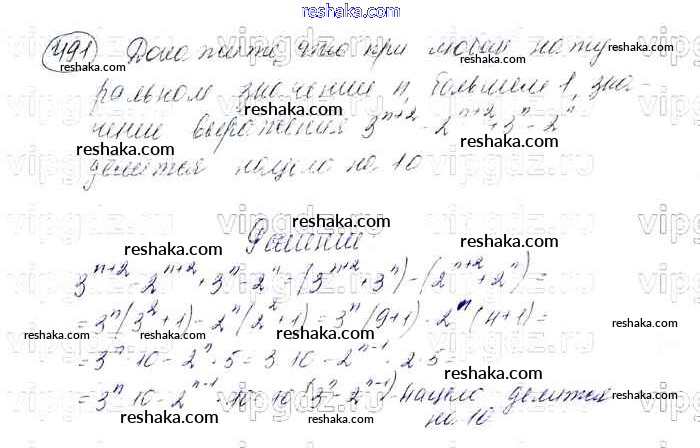 reshaka.com
491 Докажите, что при любом нату
reshaka.com reshaka.com
ральном значении n, большем 1, зна-
чение выражения 3^{n+2} - 2^{n+2} + 3^n - 2^n
делится нацело на 10
reshaka.com reshaka.com
Решение
reshaka.com reshaka.com
3^{n+2} - 2^{n+2} + 3^n - 2^n = (3^{n+2} + 3^n) - (2^{n+2} + 2^n) =
= 3^n (3^2 + 1) - 2^n (2^2 + 1) = 3^n (9+1) - 2^n (4+1) =
reshaka.com reshaka.com
= 3^n · 10 - 2^n · 5 = 3 10 - 2^{n-1} · 2 · 5 =
reshaka.com
= 3^n 10 - 2^{n-1} · 10 = 10 (3^n - 2^{n-1}) - нацело делится
на 10
reshaka.com reshaka.com
reshaka.com